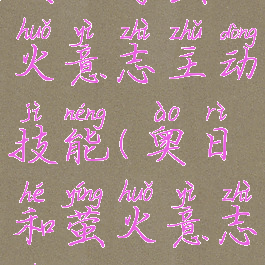 huǒ yì zhì zhǔ dòng
火意志主动
jì néng ào rì
技能(奥日
hé yíng huǒ yì zhì
和萤火意志